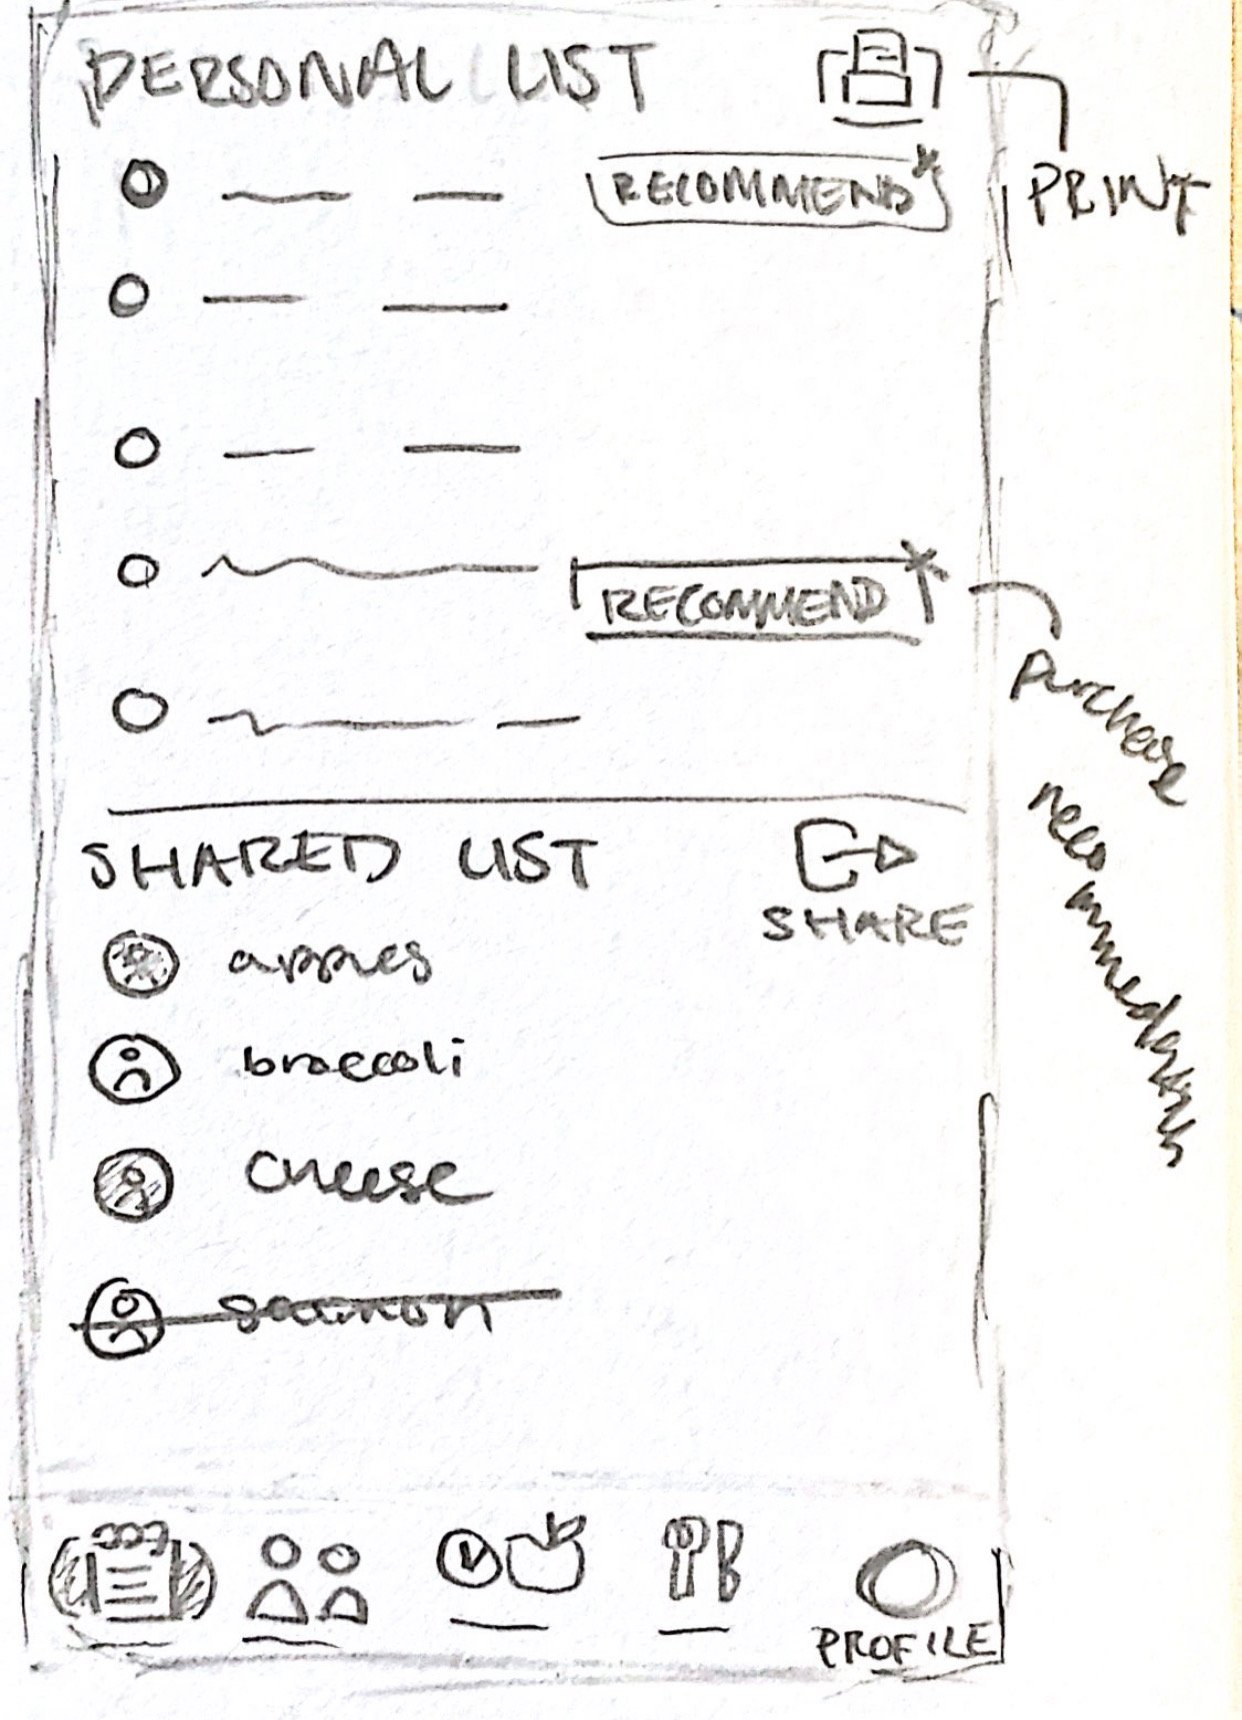 PERSONAL LIST
RECOMMEND*
PRINT
RECOMMEND*
purchase
SHARED LIST
SHARE
apples
broccoli
cheese
salmon
PROFILE